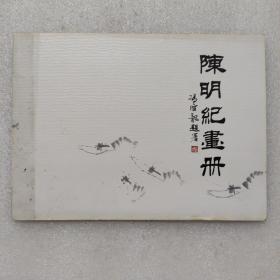 陳明紀畫冊